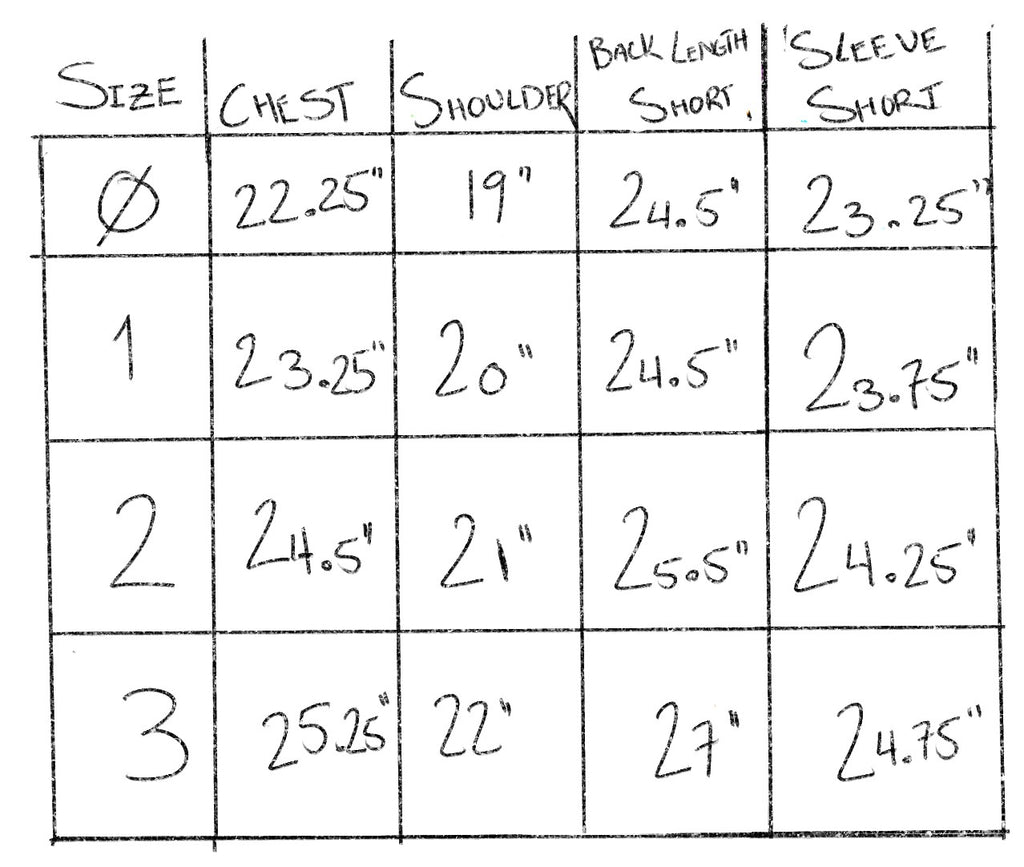 SIZE CHEST SHOULDER BACK LENGTH SHORT. SLEEVE SHORT
Ø 22.25" 19" 24.5" 23.25"
1 23.25" 20" 24.5" 23.75"
2 24.5" 21" 25.5" 24.25"
3 25.25" 22" 27" 24.75"